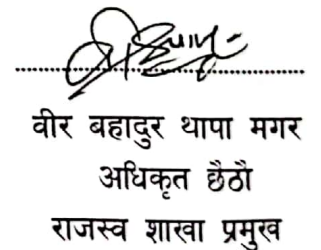 वीर बहादुर थापा मगर
अधिकृत छैठौ
राजस्व शाखा प्रमुख